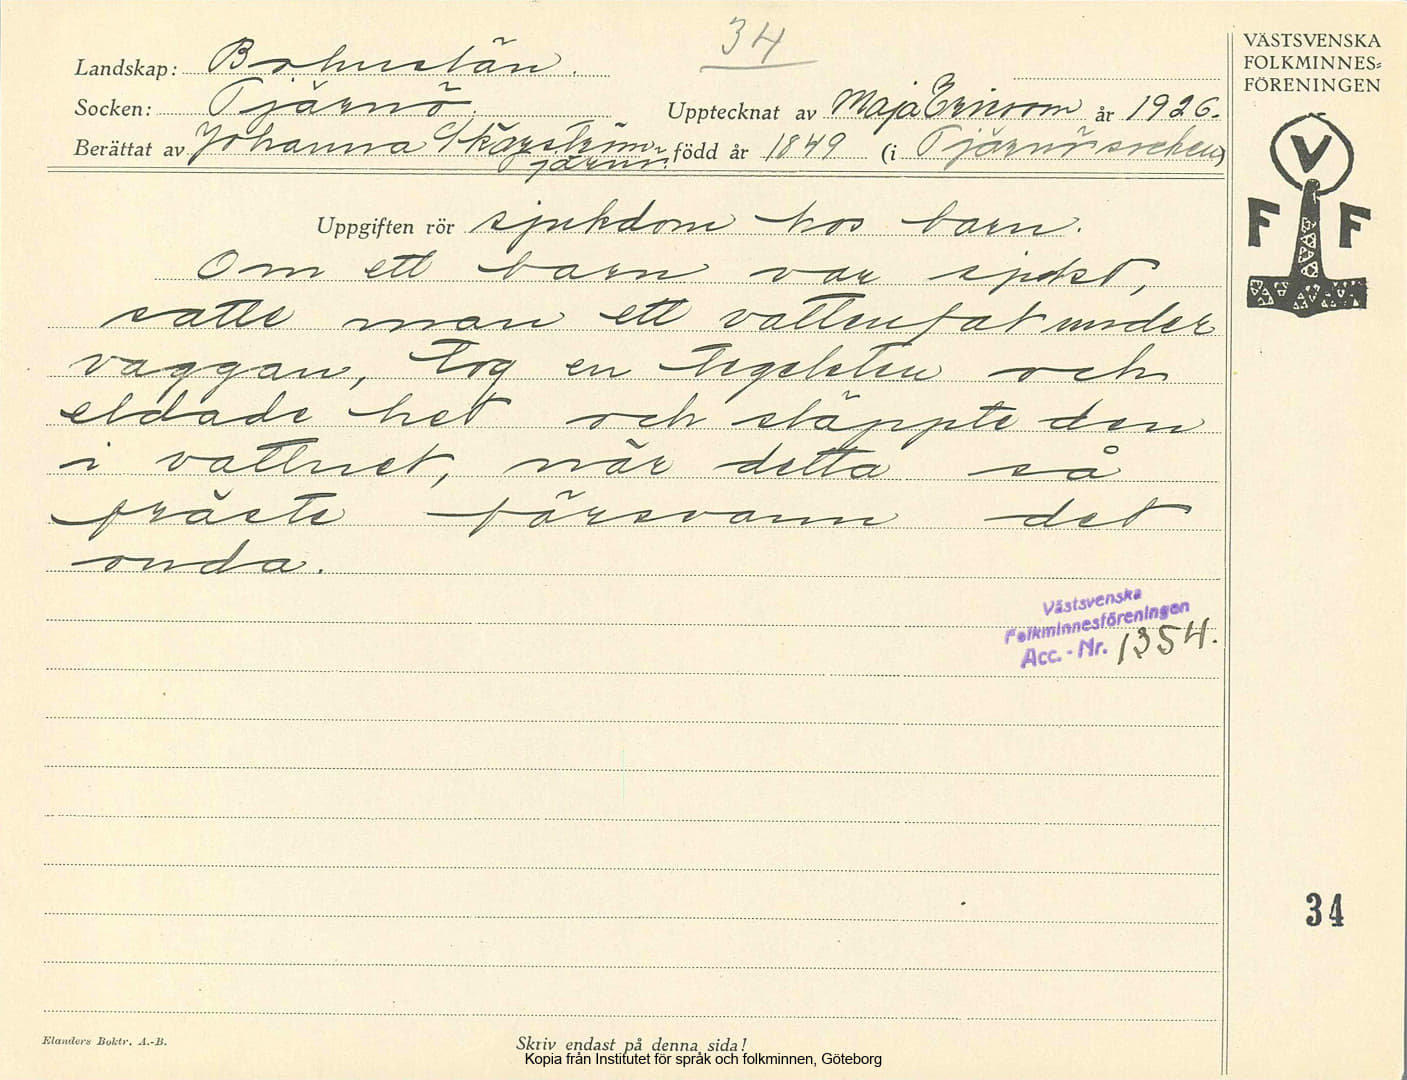 34
Landskap: Bohuslän.
Socken: Tjärnö.
Upptecknat av Maja Ericson år 1926.
Berättat av Johanna Skogström, född år 1849 (i Tjärnö socken)
Tjärnö.
Uppgiften rör sjukdom hos barn.
Om ett barn var sjukt,
satte man ett vattenfat under
vaggan, tog en tegelsten och
eldade het och släppte den
i vattnet, när detta så
fräste försvann det
onda.
Västsvenska
Folkminnesföreningen
Acc.-Nr. 1354.
VÄSTSVENSKA
FOLKMINNES=
FÖRENINGEN
V
F F
34
Elanders Boktr. A.-B.
Skriv endast på denna sida!
Kopia från Institutet för språk och folkminnen, Göteborg